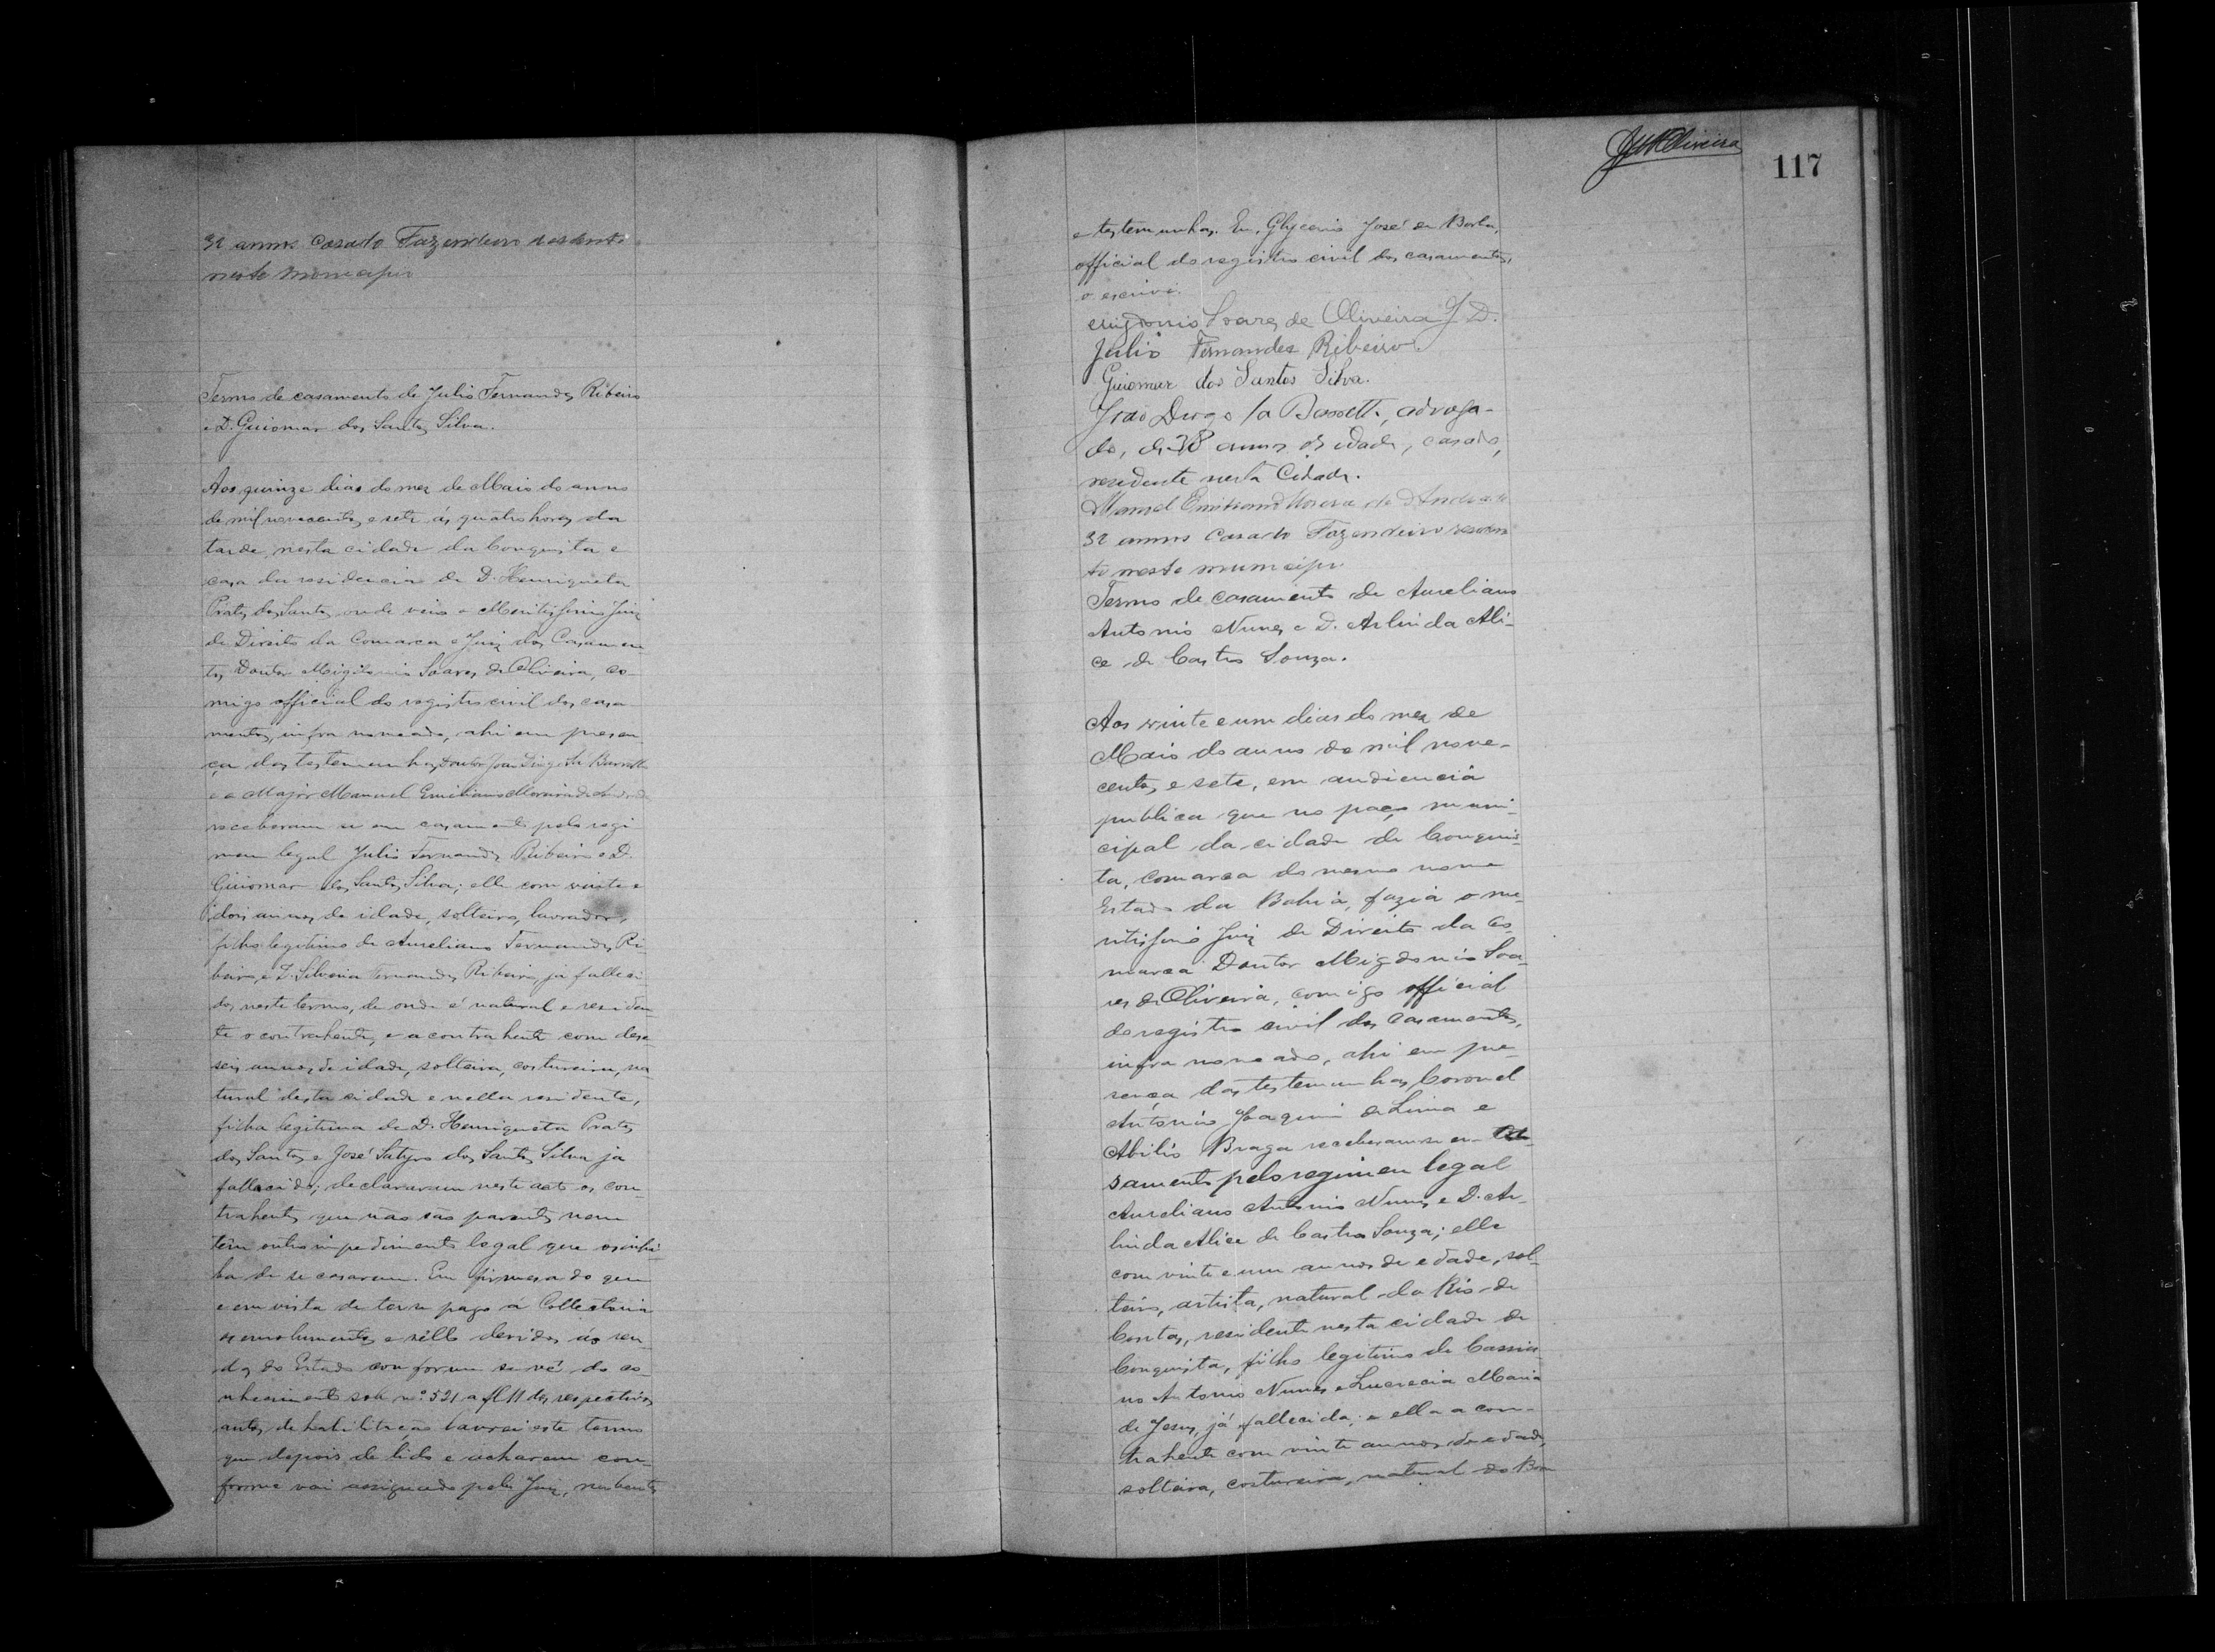 32 annos casado Fazendeiro residente
neste municipio
Termo de casamento de Julio Fernandes Ribeiro
e D. Guiomar dos Santos Silva.
Aos quinze dias do mez de Maio do anno
de mil novecentos e sete ás quatro horas da
tarde, nesta cidade da Conquista e
casa da residencia de D. Henriqueta
Prates dos Santos onde veio o Meritissimo Juiz
de Direito da Comarca e Juiz dos Casamen-
tos Doutor Migdonio Soares de Oliveira, co-
migo official do registro civil dos casa-
mentos, infra nomeado, ahi em presen-
ça das testemunhas Doutor João Diogo Sá Barretto
e o Major Manuel Emiliano Moreira de Andrade
receberam se em casamento pelo regi
men legal Julio Fernandes Ribeiro e D.
Guiomar dos Santos Silva; elle com vinte e
dois annos de idade, solteiro, lavrador,
filho legitimo de Aureliano Fernandes Ri-
beiro, e D. Silveria Fernandes Ribeiro, já falleci
dos, neste termo, de onde é natural e residen-
te o contrahente, e a contrahente com deze-
seis annos de idade, solteira, costureira, na
tural desta cidade e nella residente,
filha legitima de D. Henriqueta Prates
dos Santos e José Satyro dos Santos Silva ja
fallecido; declararam neste acto os con-
trahentes que não são parentes nem
têm outro impedimento legal que os inhi-
ba de se casarem. Em firmesa do que
e em vista de ter-se pago á Collectoria
os emolumentos e sello devidos ás ren-
das do Estado conforme se vê do co-
nhecimento sob nº 521 a fl 11 dos respectivos
autos de habilitação lavrei este termo
que depois de lido e acharem con-
forme vai assignado pelo Juiz, nubentes
117
e testemunhas. Eu, Glycerio José de Borba,
official do registro civil dos casamentos,
o escrivi.
Migdonio Soares de Oliveira J D.
Julio Fernandes Ribeiro
Guiomar dos Santos Silva.
João Diogo Sá Barretto, advoga-
do, de 38 annos de idade, casado,
residente nesta Cidade.
Manoel Emiliano Moreira de Andrade
32 annos Casado Fazendeiro residen
te neste municipio
Termo de casamento de Aureliano
Antonio Nunes e D. Arlinda Ali-
ce de Castro Souza.
Aos vinte e um dias do mez de
Maio do anno de mil nove-
centos e sete, em audiencia
publica que no paço muni-
cipal da cidade de Conquis-
ta, comarca do mesmo nome
Estado da Bahia, fazia o me-
ritissimo Juiz de Direito da Co-
marca Doutor Migdonio Soa-
res de Oliveira, comigo official
do registro civil dos casamentos,
infra nomeado, ahi em pre-
sença das testemunhas Coronel
Antonio Joaquim de Lima e
Abilio Braga receberam se em ca-
samento pelo regimen legal
Aureliano Antonio Nunes e D. Ar-
linda Alice de Castro Souza; elle
com vinte e um annos de edade, sol-
teiro, artista, natural do Rio de
Contas, residente nesta cidade de
Conquista, filho legitimo de Cassia-
no Antonio Nunes e Lucrecia Maria
de Jesus, já fallecida; e ella a con-
trahente com vinte annos de edade,
solteira, costureira, natural do Bom